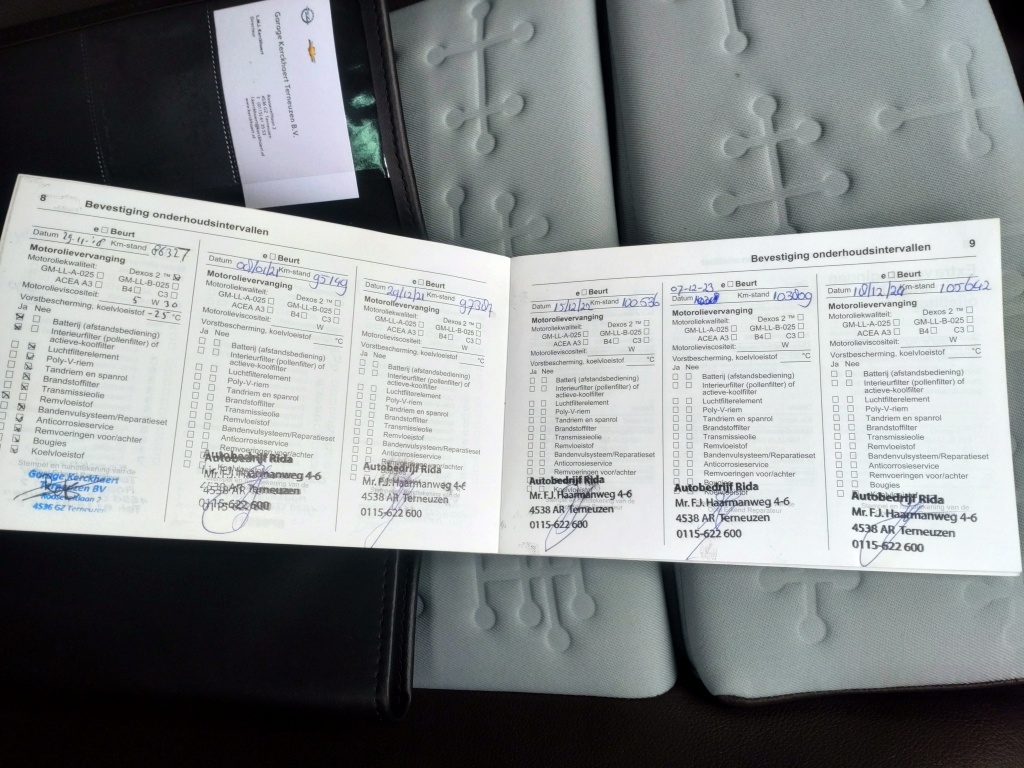 Garage Kerckhaert Terneuzen B.V.
L.M.J. Kerckhaert
Directeur
8
Bevestiging onderhoudsintervallen
e Beurt
Datum 29-11-'18 Km-stand 86327
Motorolievervanging
Motoroliekwaliteit: Dexos 2 ™
GM-LL-A-025 GM-LL-B-025
ACEA A3 B4 C3
Motorolieviscositeit: 5 W 30
Vorstbescherming, koelvloeistof -25 °C
Ja Nee
Batterij (afstandsbediening)
Interieurfilter (pollenfilter) of
actieve-koolfilter
Luchtfilterelement
Poly-V-riem
Tandriem en spanrol
Brandstoffilter
Transmissieolie
Remvloeistof
Bandenvulsysteem/Reparatieset
Anticorrosieservice
Remvoeringen voor/achter
Bougies
Koelvloeistof
Garage Kerckhaert
Terneuzen BV
4536 GZ Terneuzen
e Beurt
Datum 08/01/21 Km-stand 95149
Motorolievervanging
Motoroliekwaliteit: Dexos 2 ™
GM-LL-A-025 GM-LL-B-025
ACEA A3 B4 C3
Motorolieviscositeit: W
Vorstbescherming, koelvloeistof °C
Ja Nee
Batterij (afstandsbediening)
Interieurfilter (pollenfilter) of
actieve-koolfilter
Luchtfilterelement
Poly-V-riem
Tandriem en spanrol
Brandstoffilter
Transmissieolie
Remvloeistof
Bandenvulsysteem/Reparatieset
Anticorrosieservice
Remvoeringen voor/achter
Autobedrijf Rida
Mr. F.J. Haarmanweg 4-6
4538 AR Terneuzen
0115-622 600
e Beurt
Datum 29/12/21 Km-stand 97387
Motorolievervanging
Motoroliekwaliteit: Dexos 2 ™
GM-LL-A-025 GM-LL-B-025
ACEA A3 B4 C3
Motorolieviscositeit: W
Vorstbescherming, koelvloeistof °C
Ja Nee
Batterij (afstandsbediening)
Interieurfilter (pollenfilter) of
actieve-koolfilter
Luchtfilterelement
Poly-V-riem
Tandriem en spanrol
Brandstoffilter
Transmissieolie
Remvloeistof
Bandenvulsysteem/Reparatieset
Anticorrosieservice
Remvoeringen voor/achter
Autobedrijf Rida
Mr. F.J. Haarmanweg 4-6
4538 AR Terneuzen
0115-622 600
Bevestiging onderhoudsintervallen
9
e Beurt
Datum Km-stand 100536
Motorolievervanging
Motoroliekwaliteit: Dexos 2 ™
GM-LL-A-025 GM-LL-B-025
ACEA A3 B4 C3
Motorolieviscositeit: W
Vorstbescherming, koelvloeistof °C
Ja Nee
Batterij (afstandsbediening)
Interieurfilter (pollenfilter) of
actieve-koolfilter
Luchtfilterelement
Poly-V-riem
Tandriem en spanrol
Brandstoffilter
Transmissieolie
Remvloeistof
Bandenvulsysteem/Reparatieset
Anticorrosieservice
Remvoeringen voor/achter
Autobedrijf Rida
Mr. F.J. Haarmanweg 4-6
4538 AR Terneuzen
0115-622 600
07-12-23
e Beurt
Datum Km-stand 103809
Motorolievervanging
Motoroliekwaliteit: Dexos 2 ™
GM-LL-A-025 GM-LL-B-025
ACEA A3 B4 C3
Motorolieviscositeit: W
Vorstbescherming, koelvloeistof °C
Ja Nee
Batterij (afstandsbediening)
Interieurfilter (pollenfilter) of
actieve-koolfilter
Luchtfilterelement
Poly-V-riem
Tandriem en spanrol
Brandstoffilter
Transmissieolie
Remvloeistof
Bandenvulsysteem/Reparatieset
Anticorrosieservice
Remvoeringen voor/achter
Bougies
Autobedrijf Rida
Mr. F.J. Haarmanweg 4-6
4538 AR Terneuzen
0115-622 600
e Beurt
Datum 18/12/24 Km-stand 105642
Motorolievervanging
Motoroliekwaliteit: Dexos 2 ™
GM-LL-A-025 GM-LL-B-025
ACEA A3 B4 C3
Motorolieviscositeit: W
Vorstbescherming, koelvloeistof °C
Ja Nee
Batterij (afstandsbediening)
Interieurfilter (pollenfilter) of
actieve-koolfilter
Luchtfilterelement
Poly-V-riem
Tandriem en spanrol
Brandstoffilter
Transmissieolie
Remvloeistof
Bandenvulsysteem/Reparatieset
Anticorrosieservice
Remvoeringen voor/achter
Bougies
Autobedrijf Rida
Mr. F.J. Haarmanweg 4-6
4538 AR Terneuzen
0115-622 600